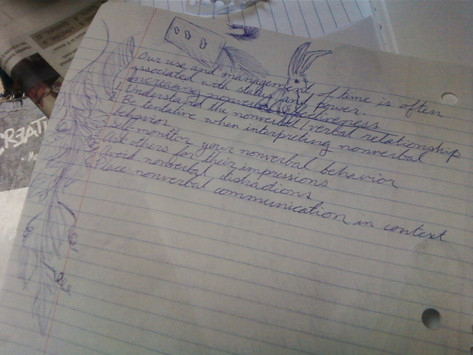 Our use and management of time is often
associated with status and power.
increasing nonverbal effectiveness
1. Understand the nonverbal/verbal relationship
2. Be tentative when interpreting nonverbal
behavior
monitor your nonverbal behavior
others for their impressions
nonverbal distractions
place nonverbal communication in context
EATI